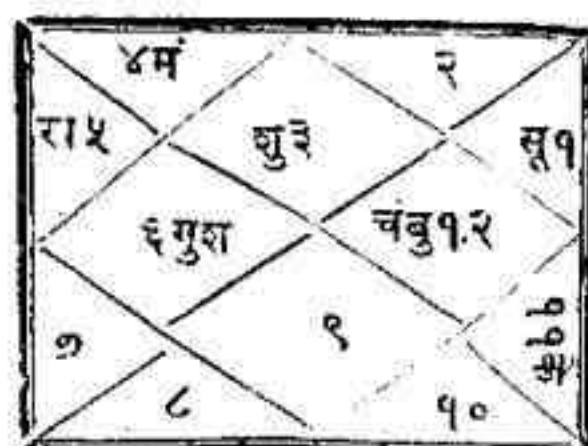 ४मं २
रा५ शु३ सू१
६गुश चंबु१.२
७ ९ के११
८ १०